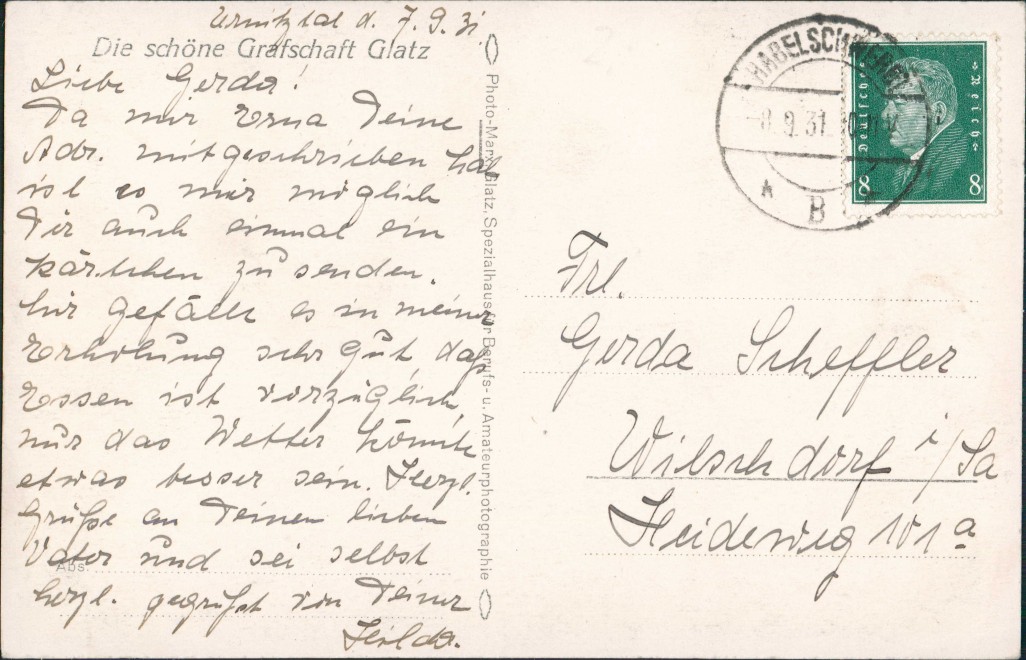 d. 7.9.31
Die schöne Grafschaft Glatz
Liebe Gerda!
Da mir Erna Deine
Adr. mitgeschrieben hat
ist es mir möglich
Dir auch einmal ein
Kärtchen zu senden.
hir gefällt es in meiner
Erholung sehr gut das
Essen ist vorzüglich,
nur das Wetter könnte
etwas besser sein. Herzl.
Grüße an Deinen lieben
Vater und sei selbst
Abs.
herzl. gegrüßt von Deiner
Photo-Marx, Glatz, Spezialhaus für Berufs- u. Amateurphotographie
HABELSCHWERDT
-8.9.31.
B
Deutsches Reich
8 8
Frl.
Gerda Scheffler
Wilschdorf i/Sa
Heideweg 101a